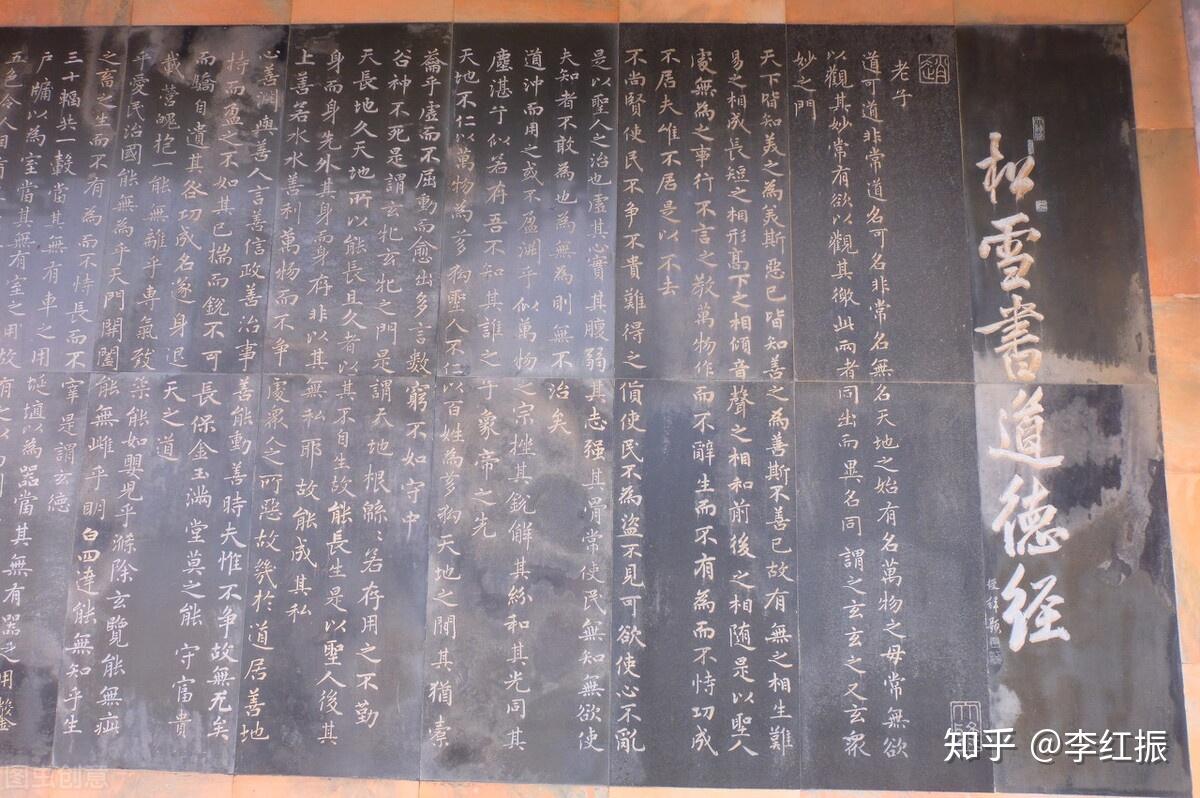 松雪書道德经
老子
道可道非常道名可名非常名無名天地之始有名萬物之母常無欲
以觀其妙常有欲以觀其徼此兩者同出而異名同謂之玄玄之又玄衆
妙之門
天下皆知美之為美斯惡已皆知善之為善斯不善已故有無之相生難
易之相成長短之相形高下之相傾音聲之相和前後之相随是以聖人
處無為之事行不言之教萬物作而不辭生而不有為而不恃功成
不居夫惟不居是以不去
不尚賢使民不争不貴難得之貨使民不為盜不見可欲使心不亂
是以聖人之治也虛其心實其腹弱其志强其骨常使民無知無欲使
夫知者不敢為也為無為則無不治矣
道沖而用之或不盈淵乎似萬物之宗挫其銳解其紛和其光同其
塵湛兮似若存吾不知其誰之子象帝之先
天地不仁以萬物為芻狗聖人不仁以百姓為芻狗天地之間其猶橐
籥乎虛而不屈動而愈出多言數窮不如守中
谷神不死是謂玄牝玄牝之門是謂天地根緜〻若存用之不勤
天長地久天地所以能長且久者以其不自生故能長生是以聖人後其
身而身先外其身而身存非以其無私耶故能成其私
上善若水水善利萬物而不争處衆人之所惡故幾於道居善地
心善淵與善人言善信政善治事善能動善時夫惟不争故無尤矣
持而盈之不如其已揣而銳不可長保金玉滿堂莫之能守富貴
而驕自遺其咎功成名遂身退天之道
載營魄抱一能無離乎專氣致柔能如嬰兒乎滌除玄覽能無疵
乎愛民治國能無為乎天門開闔能無雌乎明白四達能無知乎生
之畜之生而不有為而不恃長而不宰是謂玄德
三十輻共一轂當其無有車之用埏埴以為器當其無有器之用鑿
户牖以為室當其無有室之用故有之以
五色令人目
知乎 @李红振
图虫创意